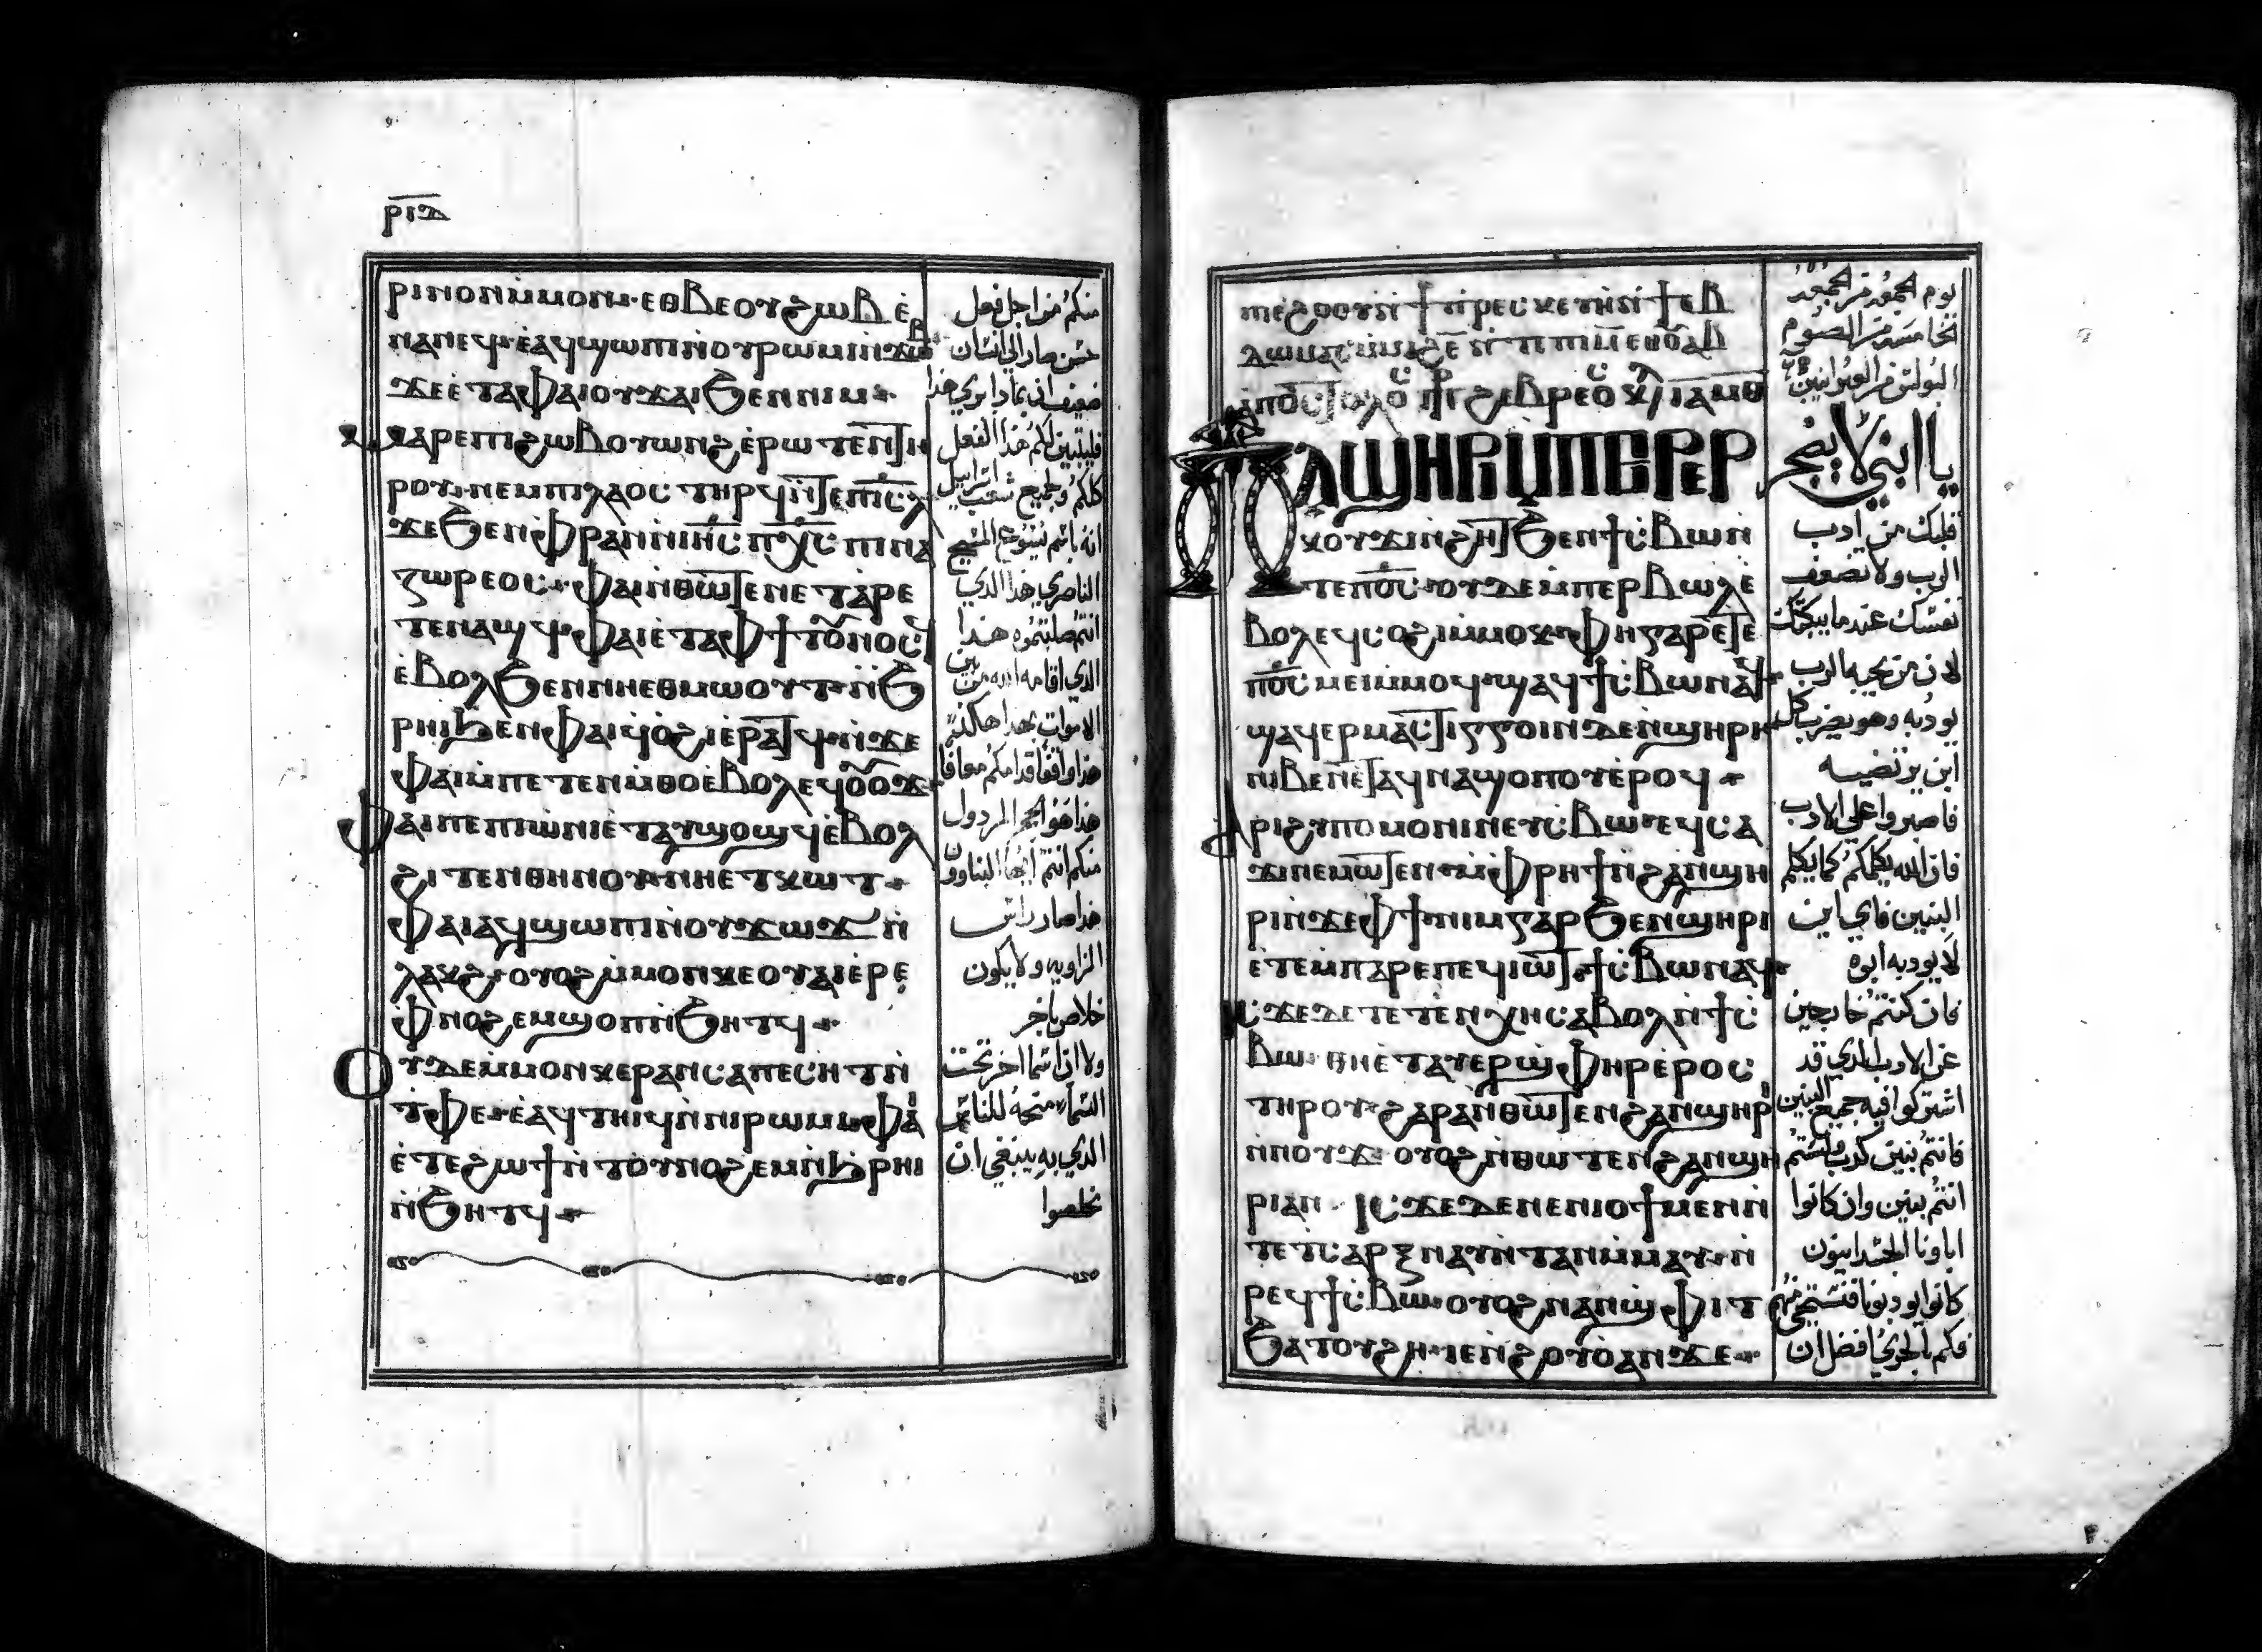 ⲣⲓⲇ
ⲣⲓⲛⲟⲛⲙⲙⲟⲛ· ⲉⲑⲃⲉⲟⲩϩⲱⲃⲉ̀
ⲛⲁⲛⲉϥ·ⲉ̀ⲁϥϣⲱⲡⲓⲛ̀ⲟⲩⲣⲱⲙⲓ
ϫⲉⲉ̀ⲧⲁⲫⲁⲓⲟⲩϫⲁⲓϧⲉⲛⲛⲓⲙ·
ⲙⲁⲣⲉⲡⲓϩⲱⲃⲟⲩⲱⲛϩⲉ̀ⲣⲱⲧⲉⲛⲧⲏ
ⲣⲟⲩ·ⲛⲉⲙⲡⲓⲗⲁⲟⲥ ⲧⲏⲣϥⲛ̀ⲧⲉⲡⲓⲥⲗ
ϫⲉϧⲉⲛⲫⲣⲁⲛⲛ̀ⲓⲏⲥ ⲡⲭⲥ ⲡⲓⲛⲁ
ⲍⲱⲣⲉⲟⲥ·ⲫⲁⲓⲛ̀ⲑⲱⲧⲉⲛⲉⲧⲁⲣⲉ
ⲧⲉⲛⲁϣϥ·ⲫⲁⲓⲉ̀ⲧⲁⲫϯⲧⲟⲩⲛⲟⲥϥ
ⲉ̀ⲃⲟⲗϧⲉⲛⲛⲏⲉⲑⲙⲱⲟⲩⲧ·ⲛ̀ϧ
ⲣⲏⲓϧⲉⲛⲫⲁⲓϥ̀ⲟ̀ϩⲓⲉ̀ⲣⲁⲧϥ·ⲛ̀ϫⲉ
ⲫⲁⲓⲙ̀ⲡⲉⲧⲉⲛⲙ̀ⲑⲟⲉ̀ⲃⲟⲗⲉϥⲟⲩⲟϫ·
ⲫⲁⲓⲡⲉⲡⲓⲱ̀ⲛⲓⲉ̀ⲧⲁⲩϣⲟϣϥⲉ̀ⲃⲟⲗ
ϩⲓⲧⲉⲛⲑⲏⲛⲟⲩ·ⲛⲏⲉⲧⲕⲱⲧ·
ⲫⲁⲓⲁϥϣⲱⲡⲓⲛ̀ⲟⲩϫⲱϫⲛ̀
ⲗⲁⲕϩ·ⲟⲩⲟϩⲙ̀ⲙⲟⲛⲕⲉⲟⲩⲁⲓⲉ̀ⲣⲉ
ⲫⲛⲟϩⲉⲙϣⲟⲡⲛ̀ϧⲏⲧϥ·
ⲟⲩⲇⲉⲙ̀ⲙⲟⲛⲕⲉⲣⲁⲛⲥⲁⲡⲉⲥⲏⲧⲛ̀
ⲧ̀ⲫⲉ·ⲉ̀ⲁϥⲧⲏⲓϥⲛ̀ⲛⲓⲣⲱⲙⲓ·ⲫⲁⲓ
ⲉ̀ⲧⲉϩⲱϯⲛ̀ⲧⲟⲩⲛⲟϩⲉⲙⲛ̀ϧⲣⲏⲓ
ⲛ̀ϧⲏⲧϥ·
منكم من اجل فعل
حسن صار الي انسان
ضعيف اني بماذا بري هذا
فليتبين لكم هذا الفعل
كلكم وجميع شعب اسراييل
انه باسم يسوع المسيح
الناصري هذا الدي
انتم صلبتموه هذا
الدي اقامه الله من بين
الاموات بهذا هكذا
هذا واقفا قدامكم معافا
هذا هو الحجر المردول
منكم انتم ايها البناوون
هذا صار راس
الزاويه ولا يكون
خلاص باخر
ولا ان اسما اخر تحت
السماء منحه للناس
الدي به ينبغي ان
نخلصوا
ⲡⲉϩⲟⲟⲩⲛ̀ϯⲡ̀ⲣⲉⲥⲕⲉⲩⲏⲛ̀ϯⲉⲃ
ⲡⲁϣⲏⲣⲓⲙ̀ⲡⲉⲣⲉⲣ
ⲕⲟⲩϫⲓⲛ̀ϩⲏⲧϧⲉⲛϯⲥ̀ⲃⲱⲛ̀
ⲧⲉⲡⲟ̅ⲥ̅·ⲟⲩⲇⲉⲙ̀ⲡⲉⲣⲃⲱⲗⲉ̀
ⲃⲟⲗⲉϥⲥⲟϩⲓⲙ̀ⲙⲟⲕ·ⲫⲏⲅⲁⲣⲉⲧⲉ
ⲡⲟ̅ⲥ̅ⲙⲉⲓⲙ̀ⲙⲟϥ·ϣⲁϥϯⲥ̀ⲃⲱⲛⲁϥ·
ϣⲁϥⲉⲣⲙⲁⲥⲧⲓⲅⲅⲟⲓⲛⲇⲉⲛ̀ϣⲏⲣⲓ
ⲛⲓⲃⲉⲛⲉⲧⲁϥⲛⲁϣⲟⲡⲟⲩⲉ̀ⲣⲟϥ·
ⲁⲣⲓϩⲩⲡⲟⲙⲟⲛⲓⲛⲉⲩⲥ̀ⲃⲱ·ⲉϥⲥⲁ
ϫⲓⲛⲉⲙⲱⲧⲉⲛ·ⲙ̀ⲫⲣⲏϯⲛ̀ϩⲁⲛϣⲏ
ⲣⲓⲛ̀ϫⲉⲫϯ·ⲛⲓⲙⲅⲁⲣϧⲉⲛϣⲏⲣⲓ
ⲉ̀ⲧⲉⲙⲡⲁⲣⲉⲡⲉϥⲓⲱⲧ·ϯⲥ̀ⲃⲱⲛⲁϥ·
ⲓⲥϫⲉⲇⲉⲧⲉⲧⲉⲛⲭⲏⲥⲁⲃⲟⲗⲛ̀ϯⲥ̀
ⲃⲱ·ⲑⲏⲉ̀ⲧⲁⲩⲉⲣϣ̀ⲫⲏⲣⲉ̀ⲣⲟⲥ
ⲧⲏⲣⲟⲩ·ϩⲁⲣⲁⲛ̀ⲑⲱⲧⲉⲛϩⲁⲛϣⲏⲣⲓ
ⲛ̀ⲛⲟⲩϫ· ⲟⲩⲟϩⲛ̀ⲑⲱⲧⲉⲛϩⲁⲛϣⲏ
ⲣⲓⲁⲛ· ⲓⲥϫⲉⲇⲉⲛⲉⲛⲓⲟϯⲙⲉⲛⲛ̀
ⲧⲉⲧⲥⲁⲣⲝⲛⲁⲩⲛ̀ⲧⲁⲛⲙ̀ⲙⲁⲩ·ⲛ̀
ⲣⲉϥϯⲥ̀ⲃⲱ·ⲟⲩⲟϩⲛⲁⲛϣ̀ⲫⲓⲧ
ϧⲁⲧⲟⲩϩⲏ·ⲓⲉⲛ̀ϩⲟⲩⲟ̀ⲁⲛϫⲉ·
يوم الجمعه من الجمعه
الخامسه من الصوم
البولس من العبرانيين
يا ابني لا يضجر
قلبك من ادب
الرب ولا تضعف
نفسك عند ما يبكتك
لان من يحبه الرب
يودبه وهو يضرب كل
ابن يرتضيه
فاصبروا علي الادب
فان الله يكلمكم كما يكلم
البنين فاي ابن
لا يودبه ابوه
فان كنتم خارجين
عن الادب الدي قد
اشتركوا فيه جميع البنين
فانتم بنين كدب ولستم
انتم بنين وان كانوا
اباونا الجسدانيون
كانوا يودبونا فنستحي منهم
فكم بالحري افضل ان